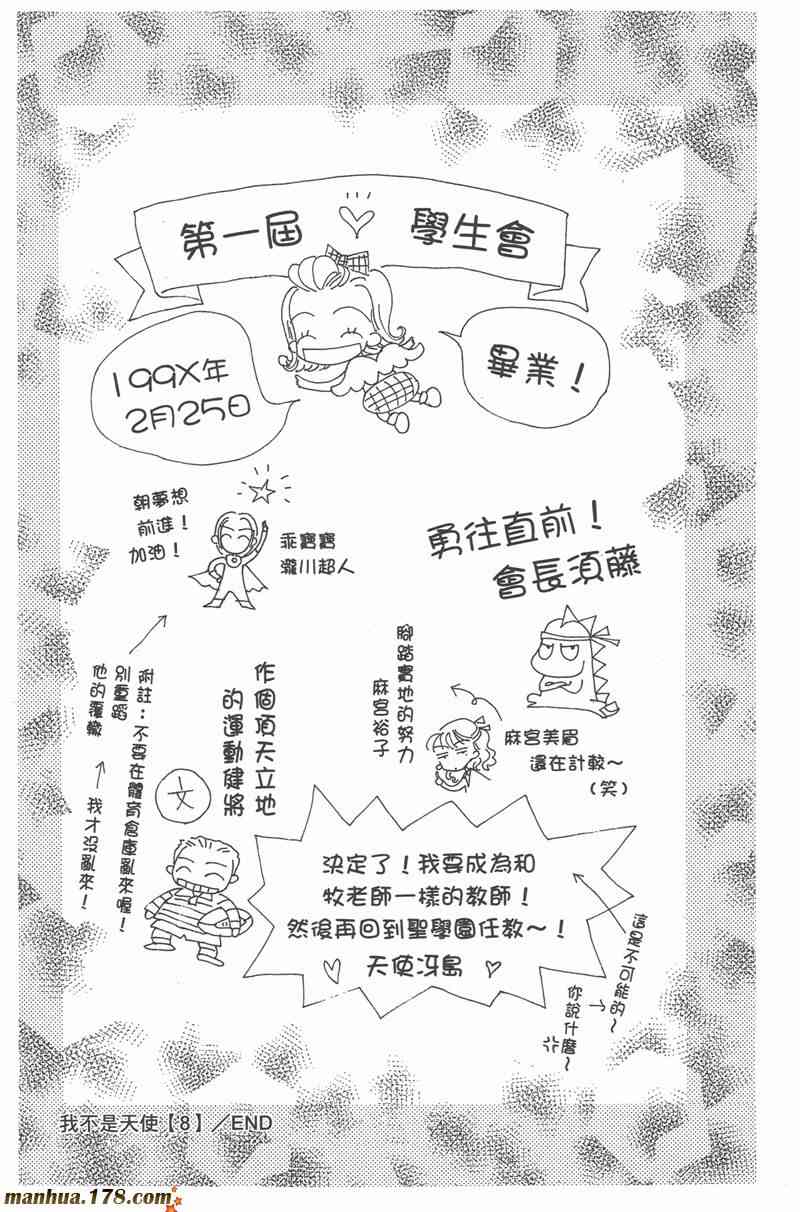 第一屆♡學生會
199X年
2月25日
畢業！
朝夢想
前進！
加油！
乖寶寶
瀧川超人
勇往直前！
會長須藤
腳踏實地的努力
麻宮裕子
麻宮美眉
還在計較～
（笑）
作個頂天立地
的運動健將
文
附註：不要在體育倉庫亂來喔！
別重蹈
他的覆轍
我才沒亂來！
決定了！我要成為和
牧老師一樣的教師！
然後再回到聖學園任教～！
♡ 天使冴島 ♡
這是不可能的～
你說什麼～
我不是天使【8】／END
manhua.178.com